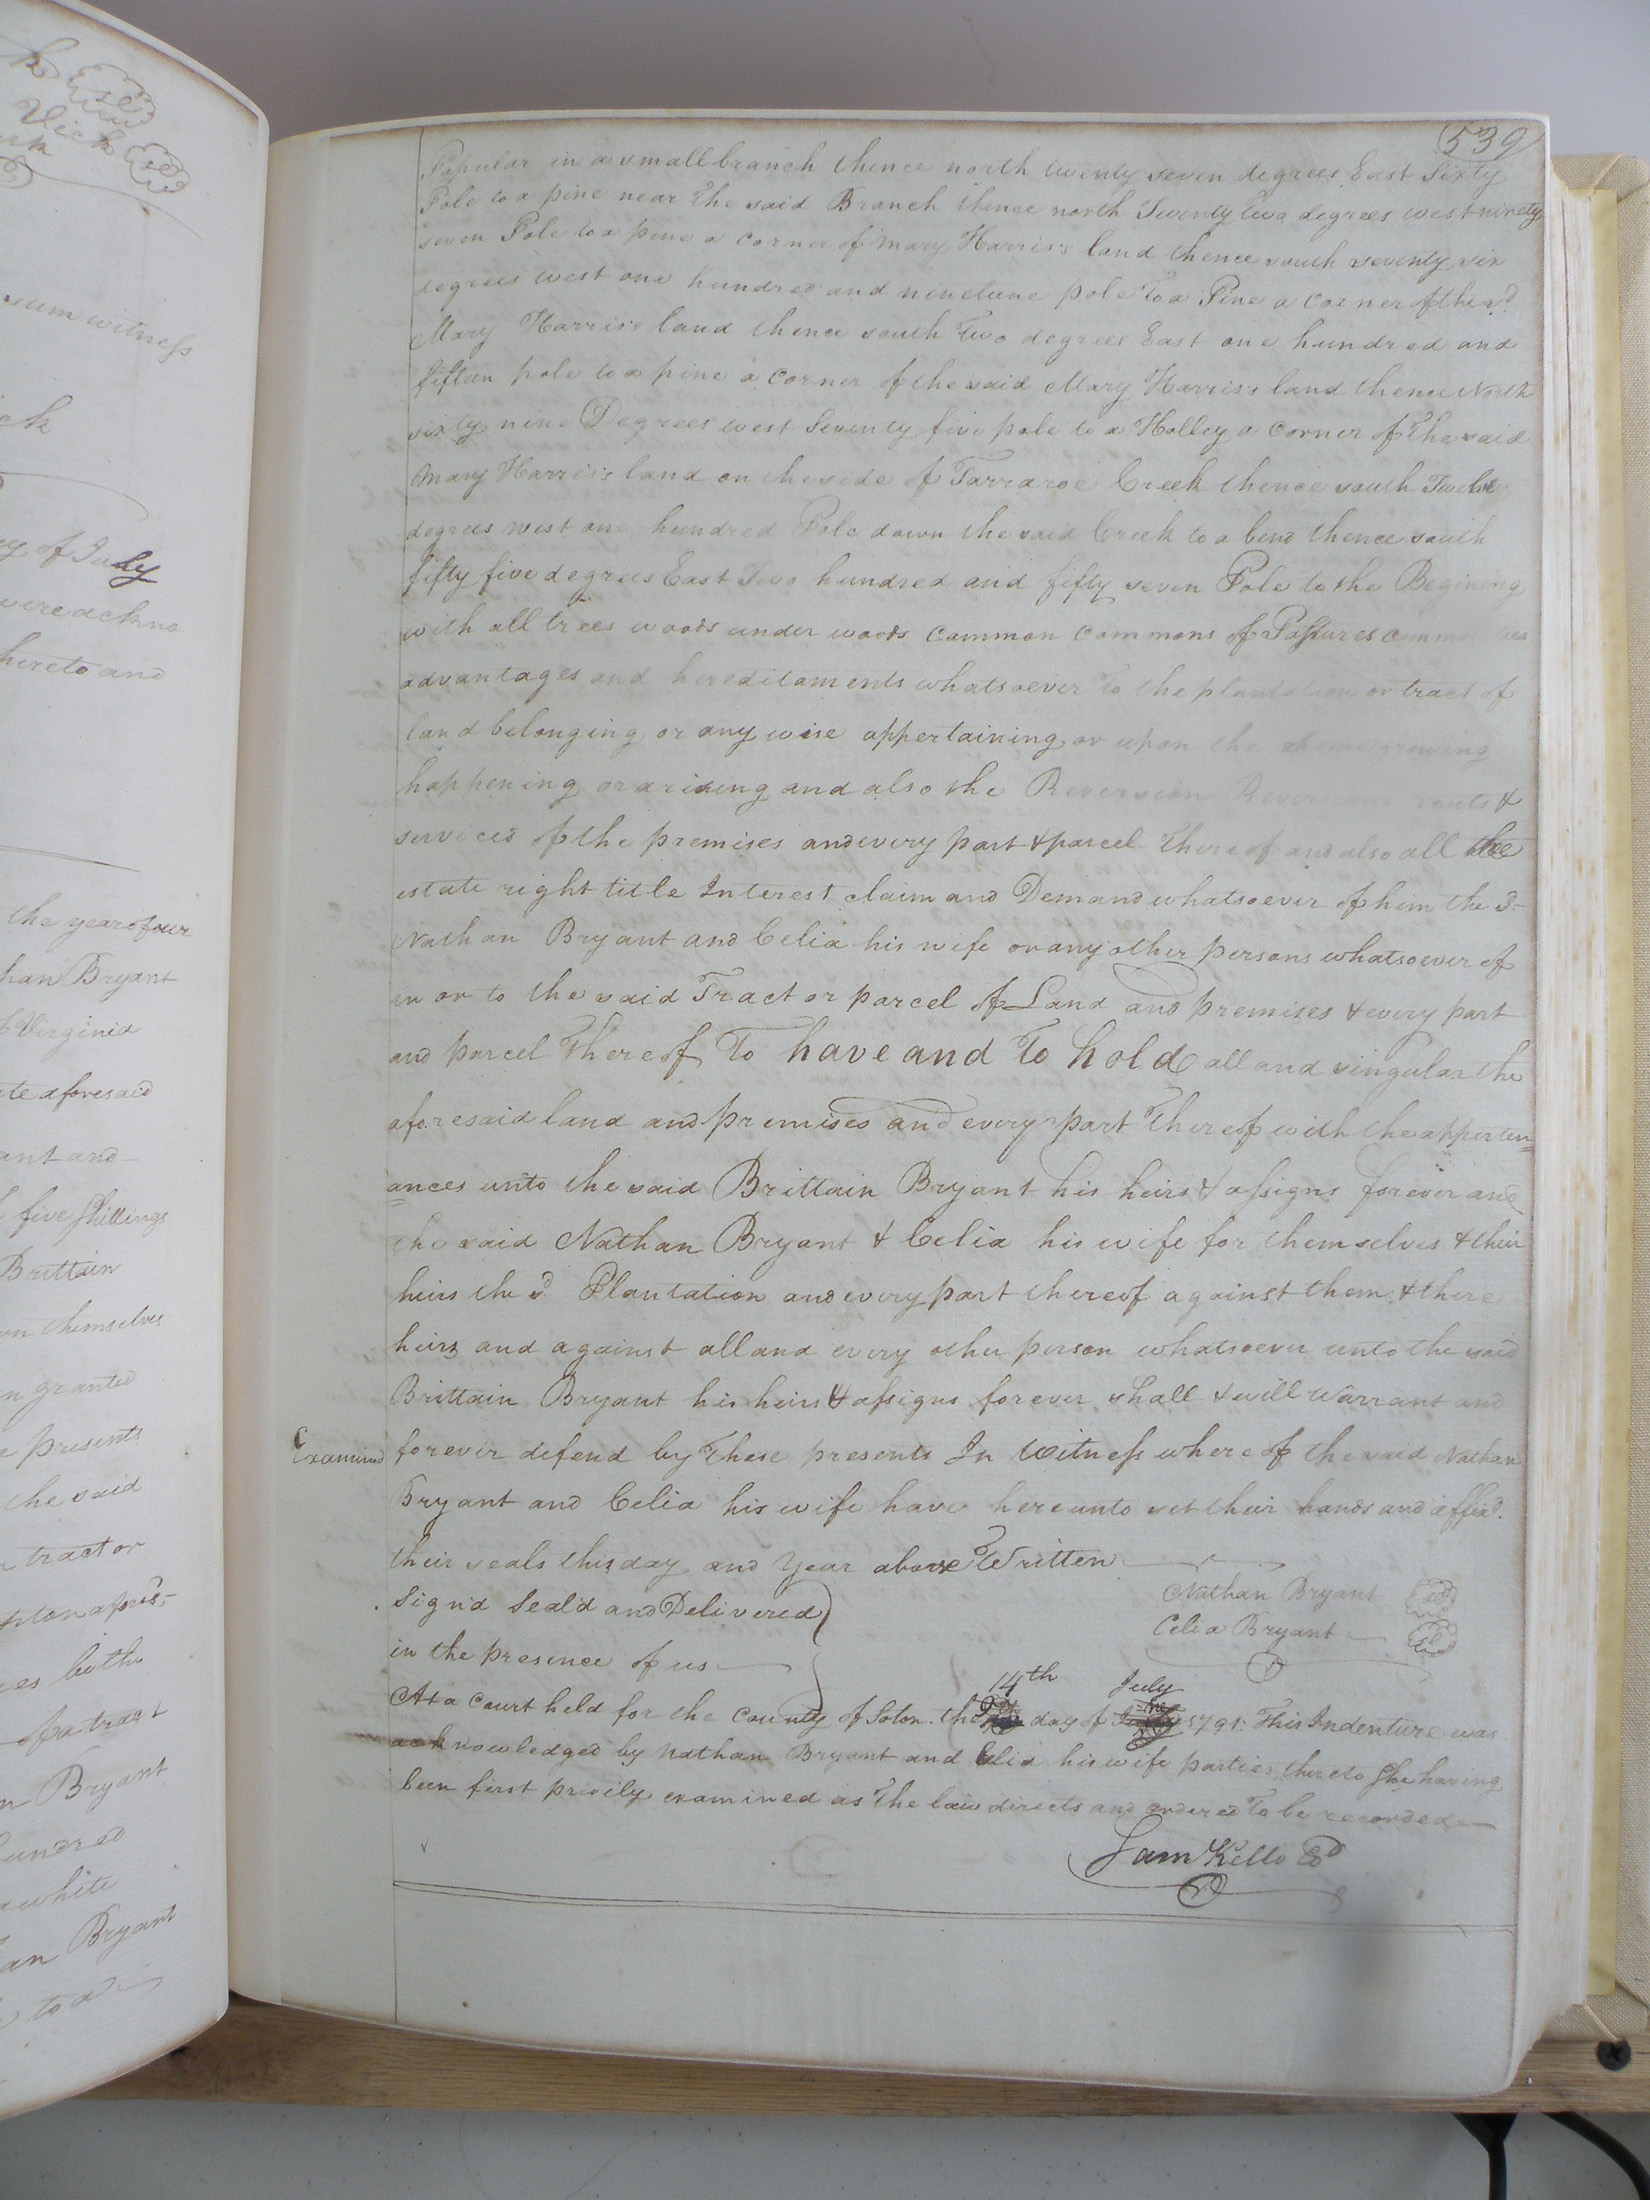 539
Popular in a small branch thence north twenty seven degrees East Sixty
Pole to a pine near the said Branch thence north Twenty two degrees west ninety
seven Pole to a pine a corner of Mary Harris's land thence south seventy six
degrees west one hundred and nineteene pole to a Pine a corner of the sd
Mary Harris's land thence south Two degrees East one hundred and
fifteen pole to a pine a Corner of the said Mary Harris's land thence North
sixty nine Degrees west Seventy five pole to a Holley a corner of the said
Mary Harris's land on the side of Tarraroe Creek thence south Twelve
degrees west one hundred Pole down the said Creek to a bend thence south
fifty five degrees East Two hundred and fifty seven Pole to the Begining
with all trees woods under woods common commons of Pastures
advantages and hereditaments whatsoever to the plantation or tract of
land belonging or any wise appertaining or upon the growing
happening or arising and also the Reversion Reversions rents &
services of the premises and every part & parcel thereof and also all the
estate right title Interest claim and Demand whatsoever of him the sd
Nathan Bryant and Celia his wife or any other persons whatsoever of
in or to the said Tract or parcel of Land and premises & every part
and parcel thereof To have and To hold all and singular the
aforesaid land and premises and every part thereof with the apperten=
=ances unto the said Brittain Bryant his heirs & assigns forever and
the said Nathan Bryant & Celia his wife for themselves & their
heirs the sd Plantation and every part thereof against them & there
heirs and against all and every other person whatsoever unto the said
Brittain Bryant his heirs & assigns forever shall & will Warrant and
Examined forever defend by These presents In Witness whereof the said Nathan
Bryant and Celia his wife have hereunto set their hands and affixd.
their seals this day and Year above Written
Sign'd Seal'd and Delivered
in the presence of us
Nathan Bryant
Celia Bryant
14th July
At a Court held for the County of Soton. the day of 1791. This Indenture was
acknowledged by Nathan Bryant and Celia his wife parties thereto She having
been first privily examined as the law directs and ordered To be recorded
Sam Kello
sum witness
of July
were ackno
hereto and
the year of our
han Bryant
Virginia
aforesaid
ant and
five shillings
Brittain
themselves
granted
presents
the said
tract or
of a tract
Bryant
hundred
white
an Bryant
to a